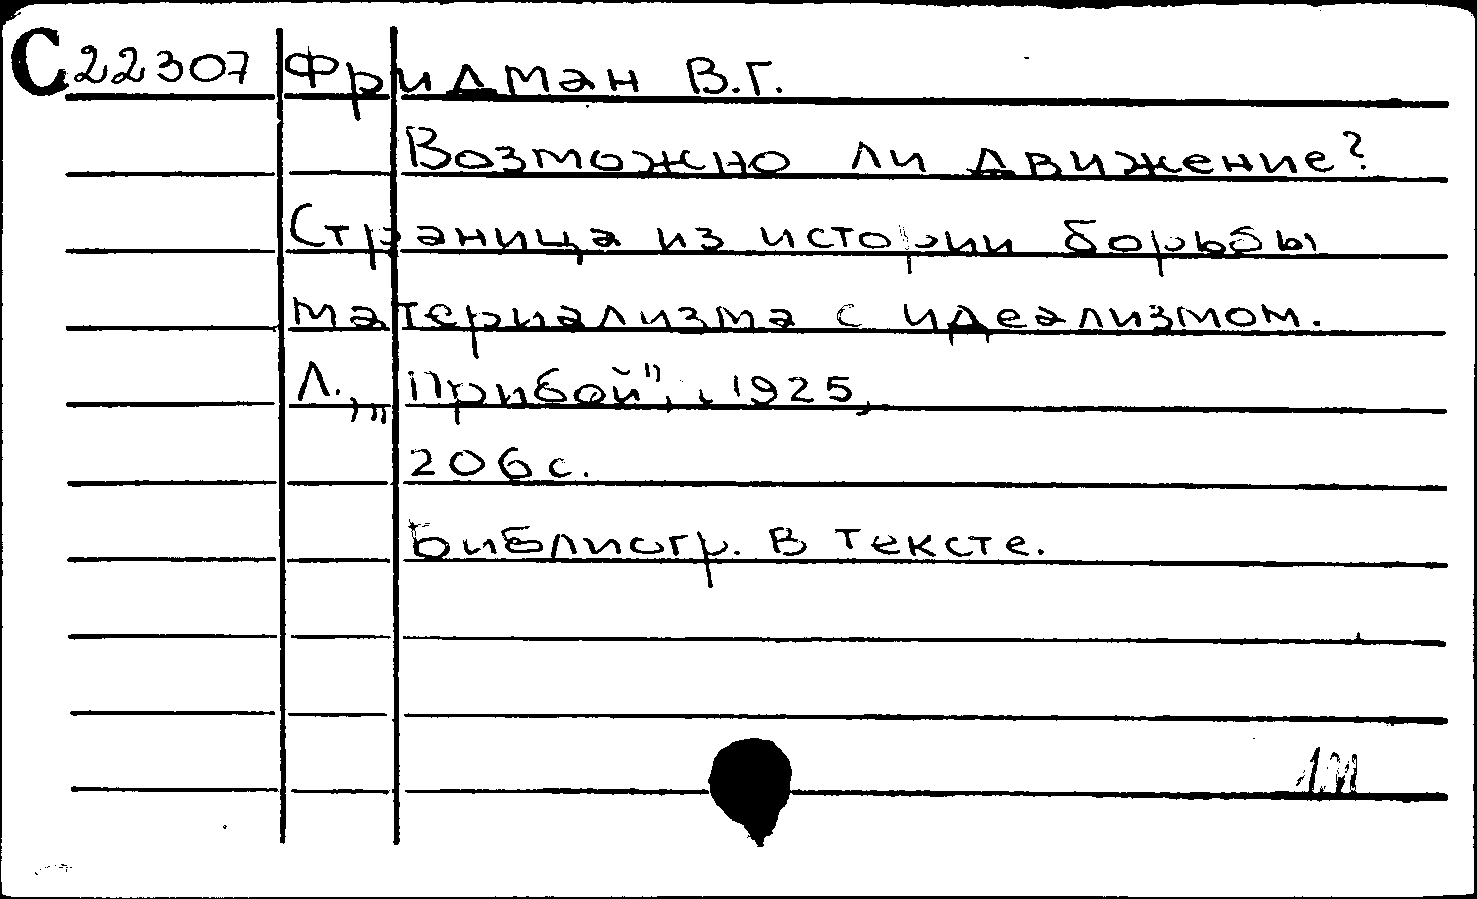 С22307 Фридман В.Г.
Возможно ли движение?
Страница из истории борьбы
материализма с идеализмом.
Л., „Прибой", 1925,
206 с.
Библиогр. в тексте.